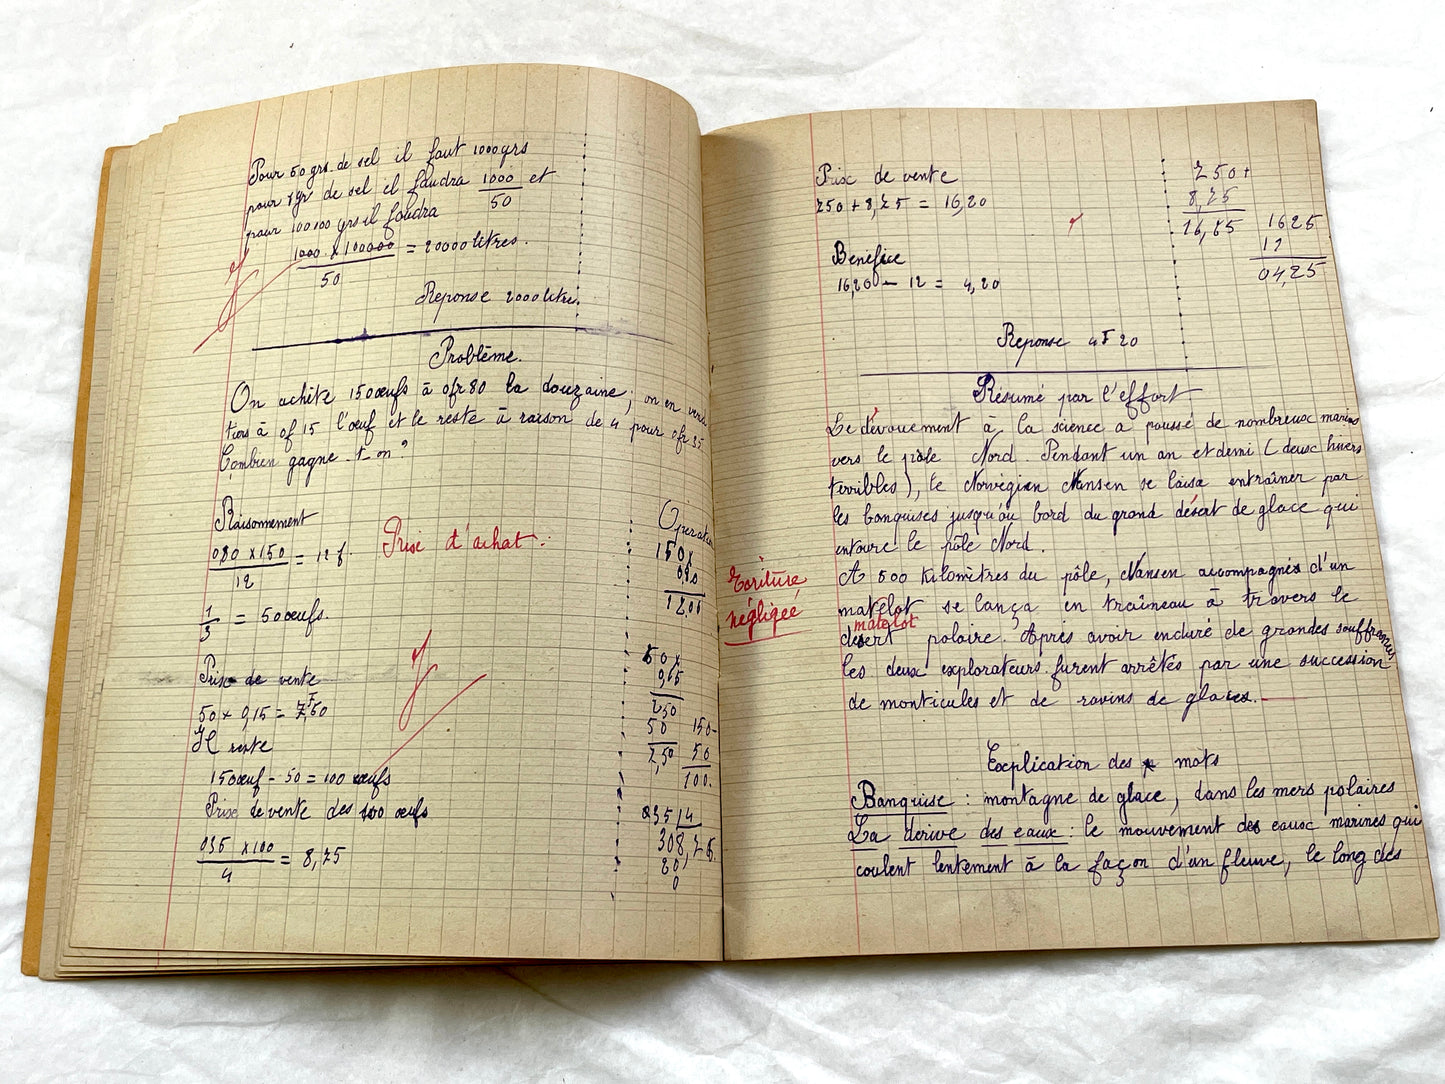 Pour 50 grs de sel il faut 1000 grs
pour 1 gr de sel il faudra 1000 et
50
pour 100 100 grs il faudra
1000 x 100000 = 20000 litres.
50
Reponse 2000 litres.
Problème.
On achète 150 œufs à 0fr80 la douzaine ; on en vend
tiers à 0f15 l'œuf et le reste à raison de 4 pour 0fr35
Combien gagne-t-on ?
Raisonnement
Opération
080 x 150 = 12 f.
12
Prix d'achat :
150 x
0,80
12.00
1/3 = 50 œufs.
Prix de vente
50 x 0,15 = 7,50
50 x
0,15
250
50
7,50
Il reste
150 œuf - 50 = 100 œufs
150-
50
100.
Prix de vente des 100 œufs
035 x 100 = 8,75
4
35 4
30 8,75
20
0
Prix de vente
750 + 8,75 = 16,20
750+
8,75
16,25
Benefice
16,20 - 12 = 4,20
1625
12
04,25
Reponse 4F20
Résumé par l'effort
Le dévouement à la science a poussé de nombreux marins
vers le pôle Nord. Pendant un an et demi (deux hivers
terribles), le Norvégien Nansen se laisa entraîner par
les banquises jusqu'au bord du grand désert de glace qui
entoure le pôle Nord.
A 500 Kilomètres du pôle, Nansen accompagné d'un
matelot se lança en traîneau à travers le
matelot
désert polaire. Après avoir enduré de grandes souffrances
les deux explorateurs furent arrêtés par une succession
de monticules et de ravins de glaces.
Ecriture
négligée
Explication des mots
Banquise : montagne de glace, dans les mers polaires
La derive des eaux : le mouvement des eaux marines qui
coulent lentement à la façon d'un fleuve, le long des